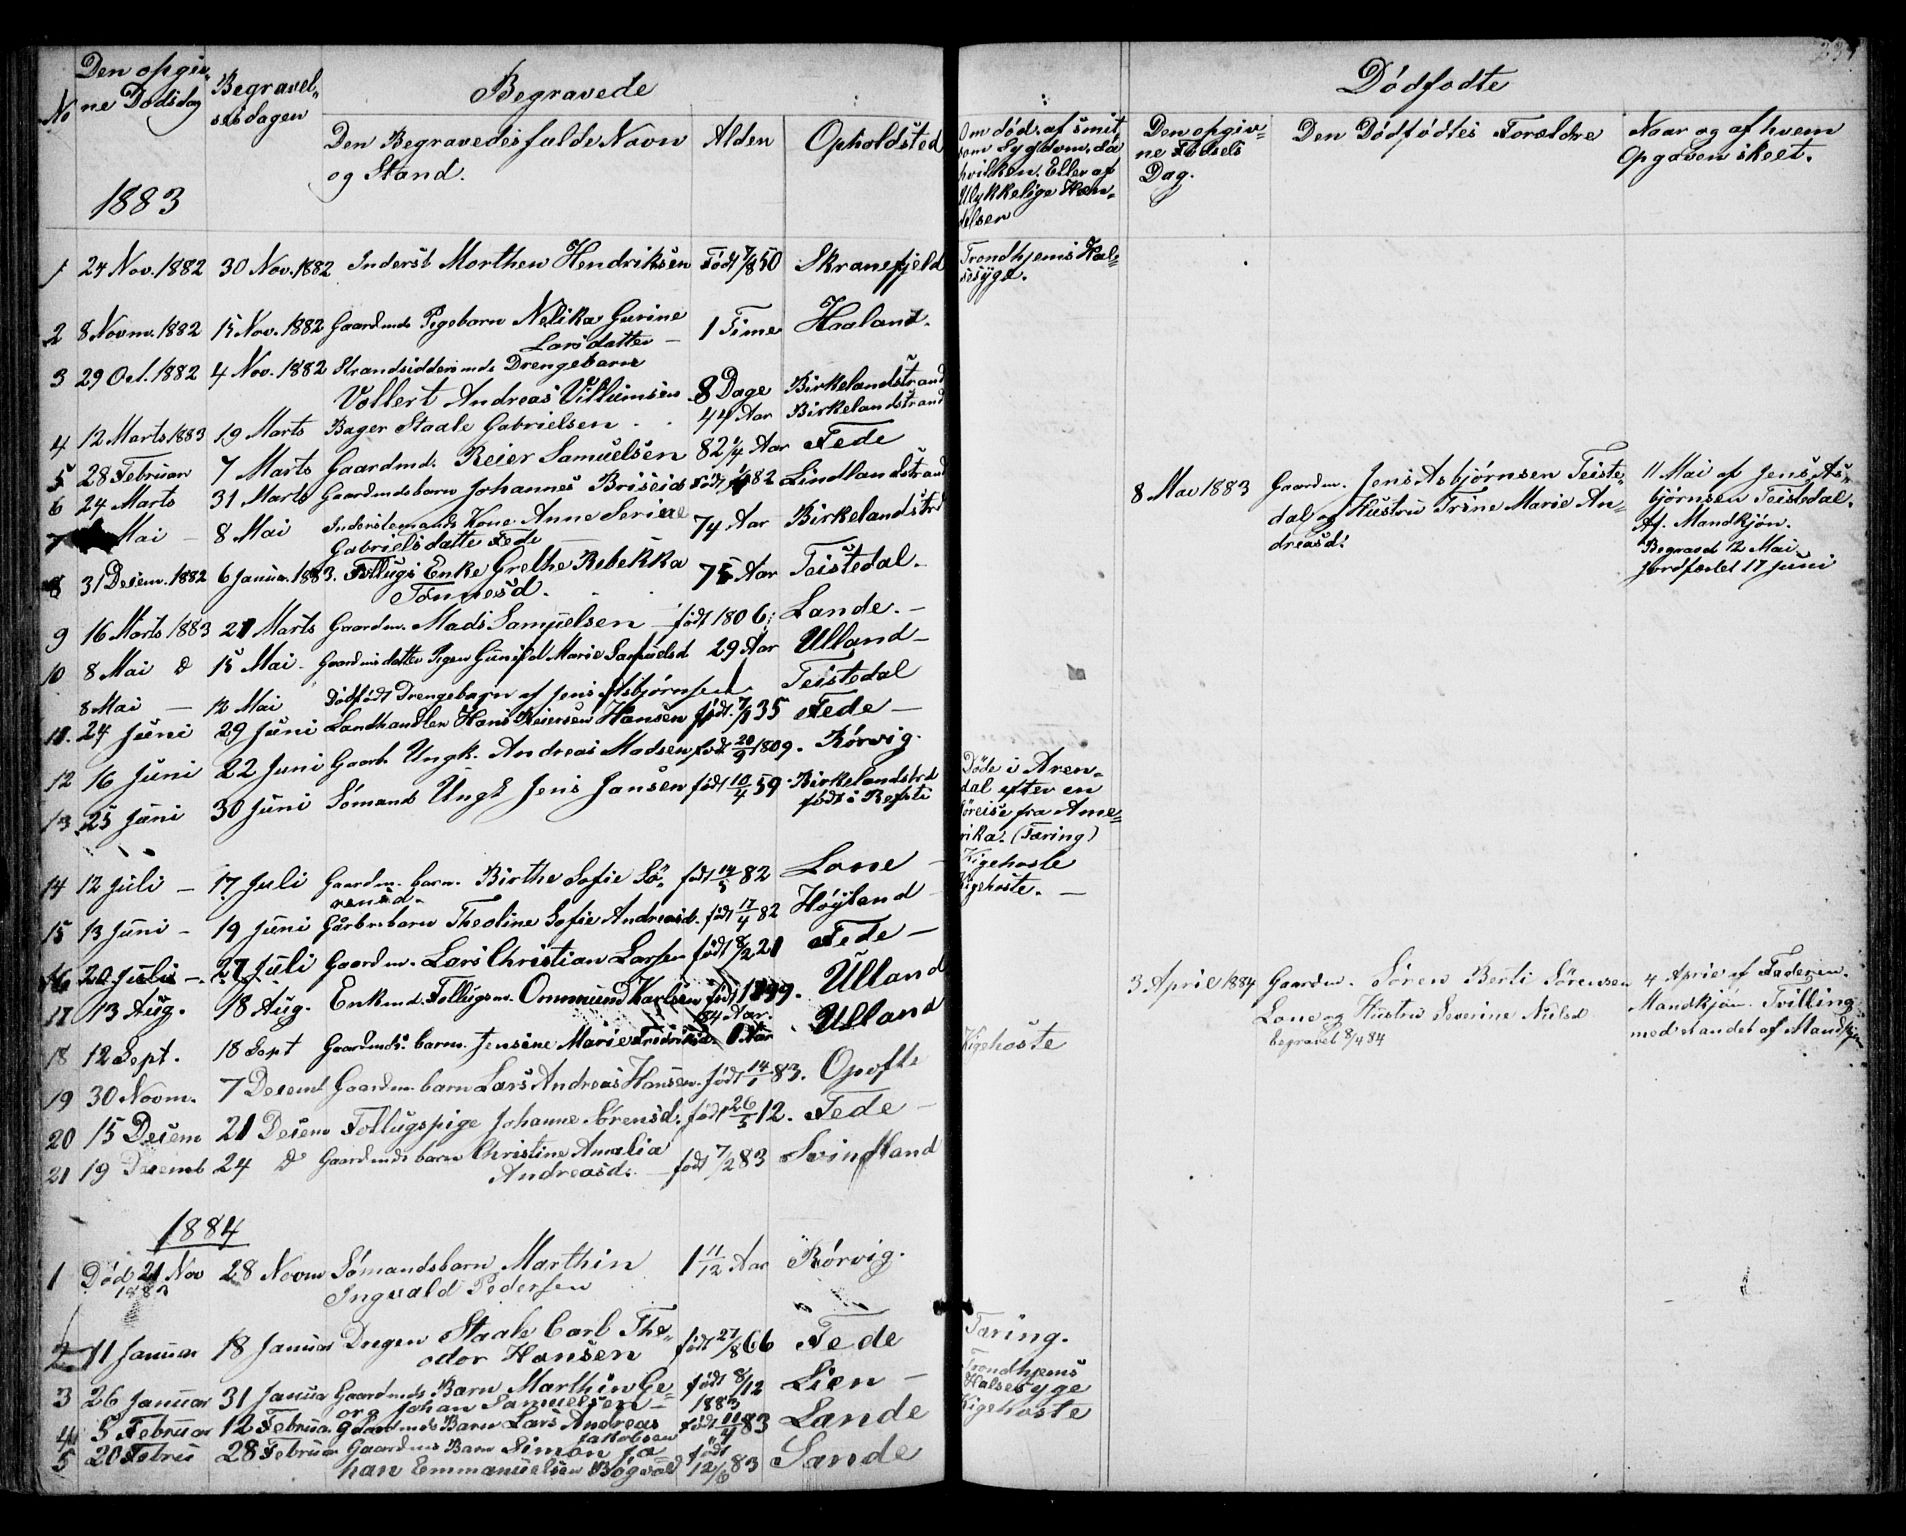 Den opgiv-
No ne Dødsdag
Begravel-
sesdagen
Begravede
Den Begravedes fulde Navn
og Stand.
Alder
Opholdsted
1883
1 24 Nov. 1882 30 Nov. 1882 Inderst Morthen Hendriksen Født 7/8 50 Skranefjeld
2 8 Novm. 1882 15 Nov. 1882 Gaardmds Pigebarn Nelika Gurine
Larsdatter — 1 Time Haaland.
3 29 Oct. 1882 4 Nov. 1882 Strandsiddermds Drengebarn
Vollert Andreas Villumsen 8 Dage Birkelandstrand
4 12 Marts 1883 19 Marts Bager Staale Gabrielsen 44 Aar Birkelandstrand
5 28 Februar 7 Marts Gaardmd. Reier Samuelsen 82 1/4 Aar Fede
6 24 Marts 31 Marts Gaardmdsbarn Johannes Briseid Født 82 Lindlandstrand
7 Mai — 8 Mai Inderstemands Kone Anne Serine
Gabrielsdatte Fede 74 Aar Birkelandstrd
8 31 Desem. 1882 6 Janua. 1883. Follugs Enke Grethe Rebekka
Tønnesd. 75 Aar Teistedal.
9 16 Marts 1883 21 Marts Gaardm. Mads Samuelsen — født 1806; Lande. —
10 8 Mai d 15 Mai - Gaardmsdatter Pigen Gunild Marie Samuelsd 29 Aar Ulland —
8 Mai — 12 Mai Dødfødt Drengebarn af Jens Asbjørnsen Teistedal
11. 24 Juni 29 Juni Landhandler Hans Reiersen Hansen født 35 Fede —
12 16 Juni 22 Juni Gaarb Ungk. Andreas Madsen født 20/9 1809. Rørvig.
13 25 Juni 30 Juni Sømands Ungk Jens Jansen født 10/4 59 Birkelandstrd
født i
14 12 Juli — 17 Juli Gaardm. barn. Birthe Sofie Sø-
rensd. født 14/5 82 Lone —
15 13 Juni — 19 Juni Gårbr.barn Theoline Sofie Andreasd. født 17/4 82 Høyland —
16 20 Juli — 27 Juli Gaardm. Lars Christian Larsen født 8/2 21 Fede —
17 13 Aug. 18 Aug. Enkemd. Follugsm. Ommund Karlsen født 1799. Ulland
84 Aar.
18 12 Sept. 18 Sept Gaardmds. barn. Jensine Marie Fredriksd. Aar Ulland
19 30 Novm. 7 Desemb Gaardm. barn Lars Andreas Hansen. født 14/1 83. Opofte
20 15 Desem 21 Desem Follugspige Johanne Sørensd. født 26/5 12. Fede —
21 19 Desemb 24 d Gaardmds barn Christine Amalia
Andreasd. — født 7/2 83 Svindland
1884
1 Død 21 Nov 28 Novm Sømandsbarn Marthin
1883 Ingvald Pedersen 1 11/12 Aar Rørvig.
2 11 Januar 18 Januar Drengen Staale Carl The-
odor Hansen født 27/8 66 Fede
3 26 Januar 31 Janua Gaardmds Barn Marthin Ge- født 8/12 Lien —
org Johan Samuelsen — 1883
4 5 Februar 12 Februa. Gaardmds Barn Lars Andreas født 11/4 83 Lande
Jakobsen
5 20 Februa 28 Februar Gaardms Barn Simon Jo- født
han Emmanuelsen Bøgvald 12/6 83 Sande
Om død af smit
som Sygdom, da
hvilken. Eller af
Ulykkelige Hæn-
delser
Trondhjems Hal-
sesyge.
Døde i Aren-
dal efter en
Søreise fra Ame-
rika. (Tæring)
Kigehoste
Kigehoste. —
Kigehoste
Tæring.
Trondhjems
Halsesyge
Kigehoste
Dødfødte
Den opgiv-
ne Fødsels
Dag.
Den Dødfødtes Forældre
Naar og af hvem
Opgaven skeet.
8 Mai 1883 Gaardm. Jens Asbjørnsen Teiste-
dal og Hustru Trine Marie An-
dreasd.
11 Mai af Jens As-
bjørnsen Teistedal.
Af Mandkjøn.
Begravet 12 Mai
Jordfæstet 17 Juni
3 April 1884 Gaardm. Søren Berti Sørensen
Lone og Hustru Severine Nilsd
begravet 8/4 84
4 April af Faderen.
Mandkjøn. Tvilling
med et andet af Mandkjøn